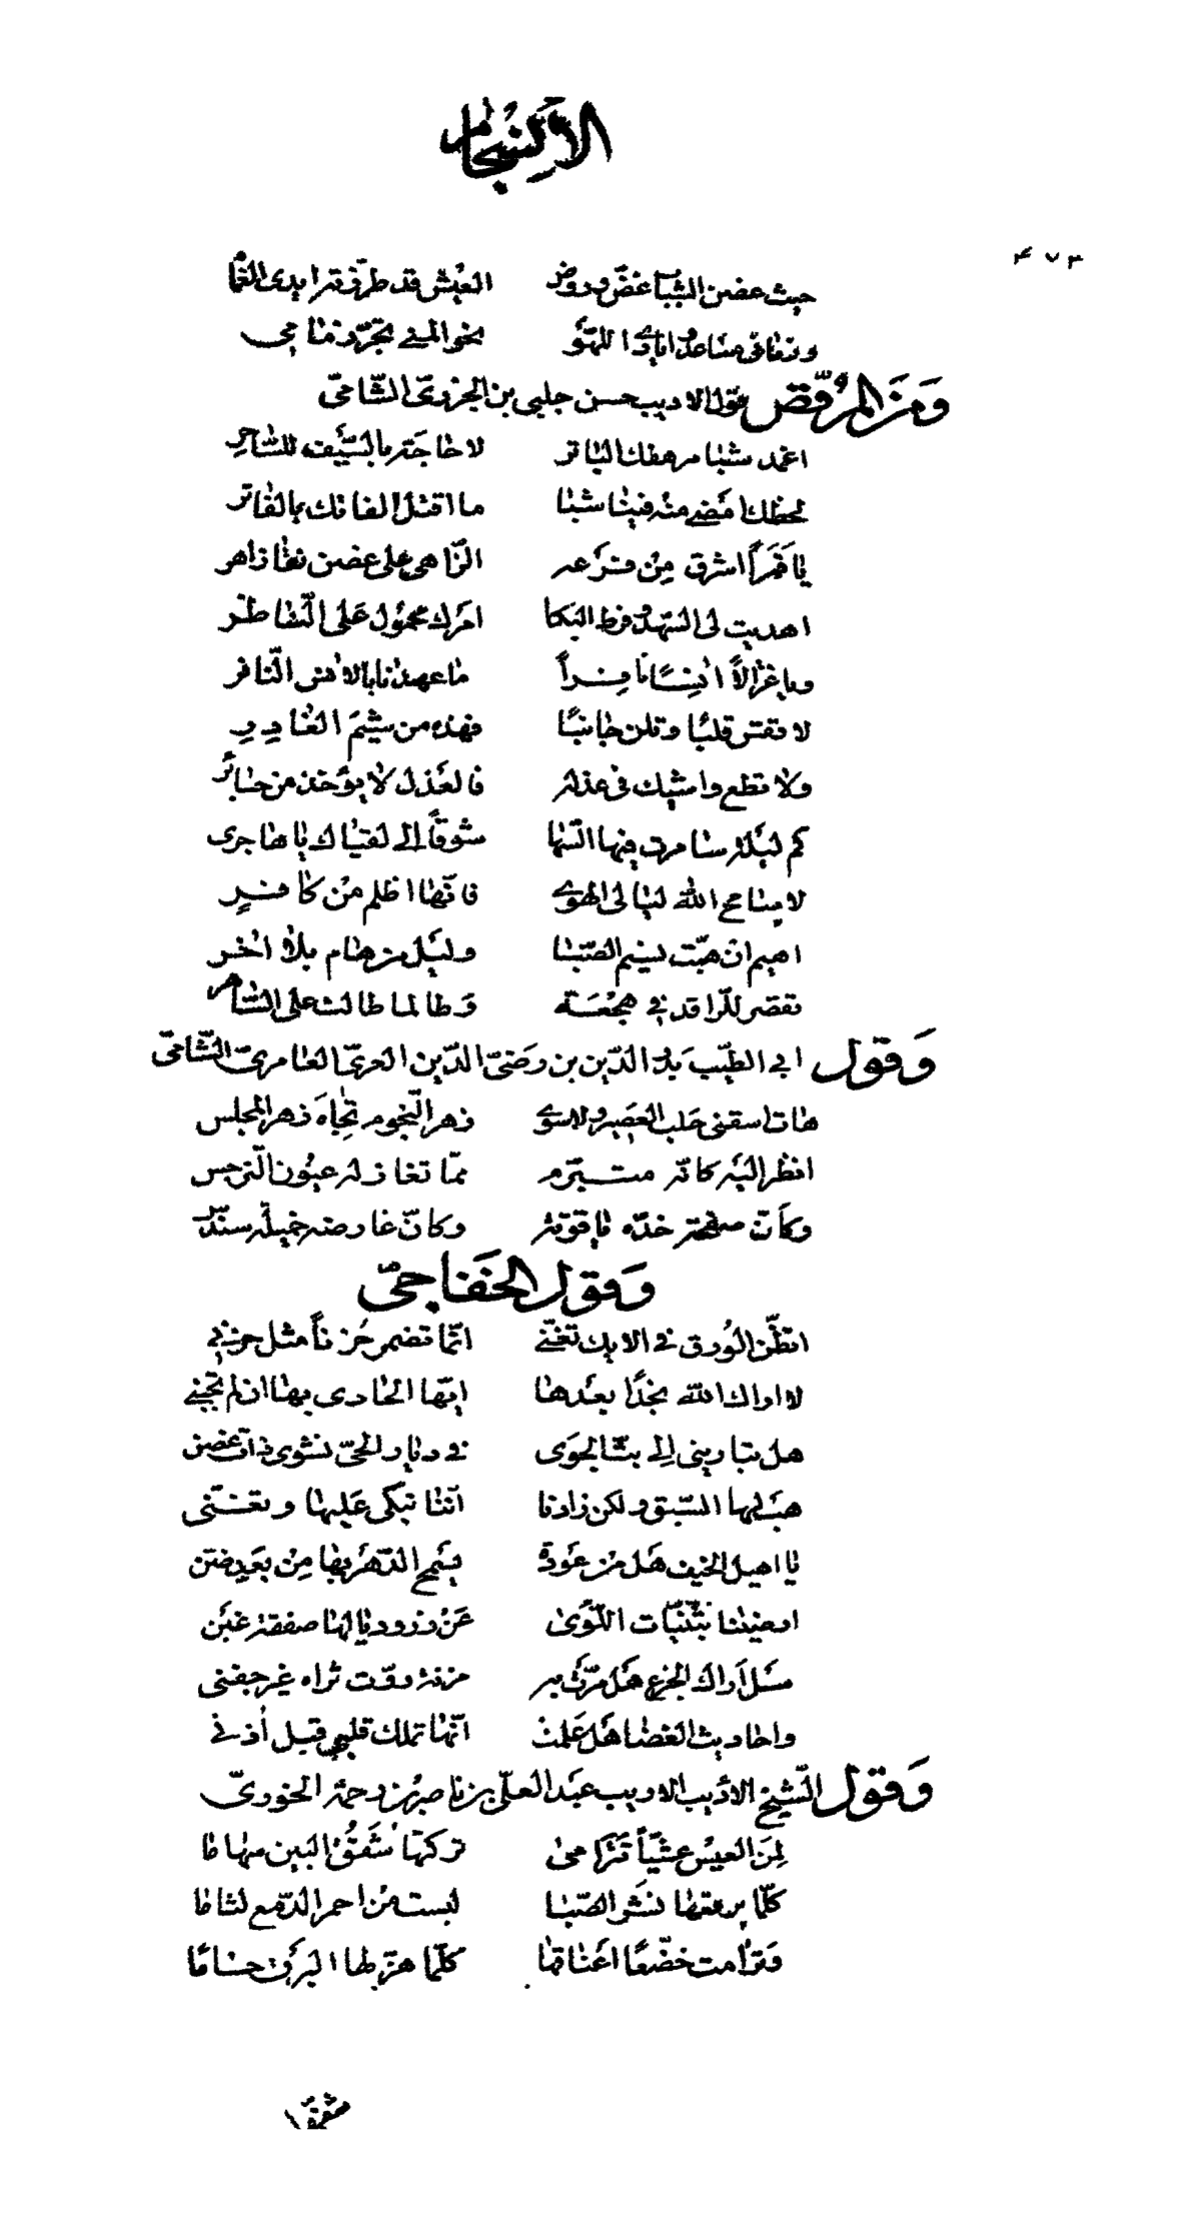 الانسجام
٤٧٣
حيث غصن الشباب غض وروض العيش قد طرزته ايدى الغمام
وزمانى مساعد وايادى اللهو نحو المنى تجر زمامى
ومن المرقص قول الاديب حسن جلبى بن الجزرىّ الشّامىّ
اغمد شبا مرهفك الباتر لا حاجة بالسّيف للسّاحر
لحظك امضى منه فينا شبا ما اقتل الفاتك بالفاتر
يا قمراً اشرق مِن فرعه الزّاهى على غصن نقا زاهر
اهديت لى السّهد وفرط البكا امرك محمول على النّاظر
ويا غزالاً انِسًا نافراً ما عهدنا بالانس النّافر
لا تقس قلبًا وتلن جانبًا فهذه من شيم الغادرِ
ولا تطع واشيك فى عذله فالعذل لا يؤخذ من جائر
كم ليلة سامرت فيها السّها شوقاً الى لقياك يا هاجرى
لا سامح الله ليالى الهوى فانّها اظلم من كافرٍ
اهيم ان هبّت نسيم الصّبا وليل من هام بلا اخر
تقصر للرّاقد فى هجعة وطالما طالت على السّاهر
وقول ابى الطّيّب بدر الدّين بن رضىّ الدّين الغزىّ العامرىّ الشّامىّ
هات اسقنى حلب العصير ولا سوى زهر النّجوم تجاه زهر المجلس
انظر اليه كانّه متبرّم ممّا تغازله عيون النّرجس
وكانّ صفحة خدّه ياقوتة وكانّ عارضه خميلة سندس
وقول الخفاجىّ
اتظنّ الورق فى الايك تغنّى انّما تضمر حُزناً مثل حزنى
لا اراك الله نجدًا بعدها ايّها الحادى بها ان لم تجبنى
هل تبارينى الى بثّ الجوى فى ديار الحىّ نشوى ذات غصن
هب لها السّبق ولكن زادنا انّنا نبكى عليها وتغنّى
يا اهيل الخيف هل من عودة يسمح الدّهر بها من بعد ضنّ
ارضينا بثنيّات اللّوى عن زرود يا لها صفقة غبن
سل اراك الجزع هل مرّت به مزنة روّت ثراه غير جفنى
واحاديث الغضا هل علمت انّها تملك قلبى قبل اُذنى
وقول الشّيخ الاديب الاريب عبد العلىّ بن ناصر بن رحمة الحويزىّ
لِمن العيس عشيّاً تترامى تركتها شقق البين سهاما
كلّما برقعها نشر الصّبا لبست من احمر الدّمع لثاما
وترامت خضّعًا اعناقها كلّما هزّ لها البرق حساما